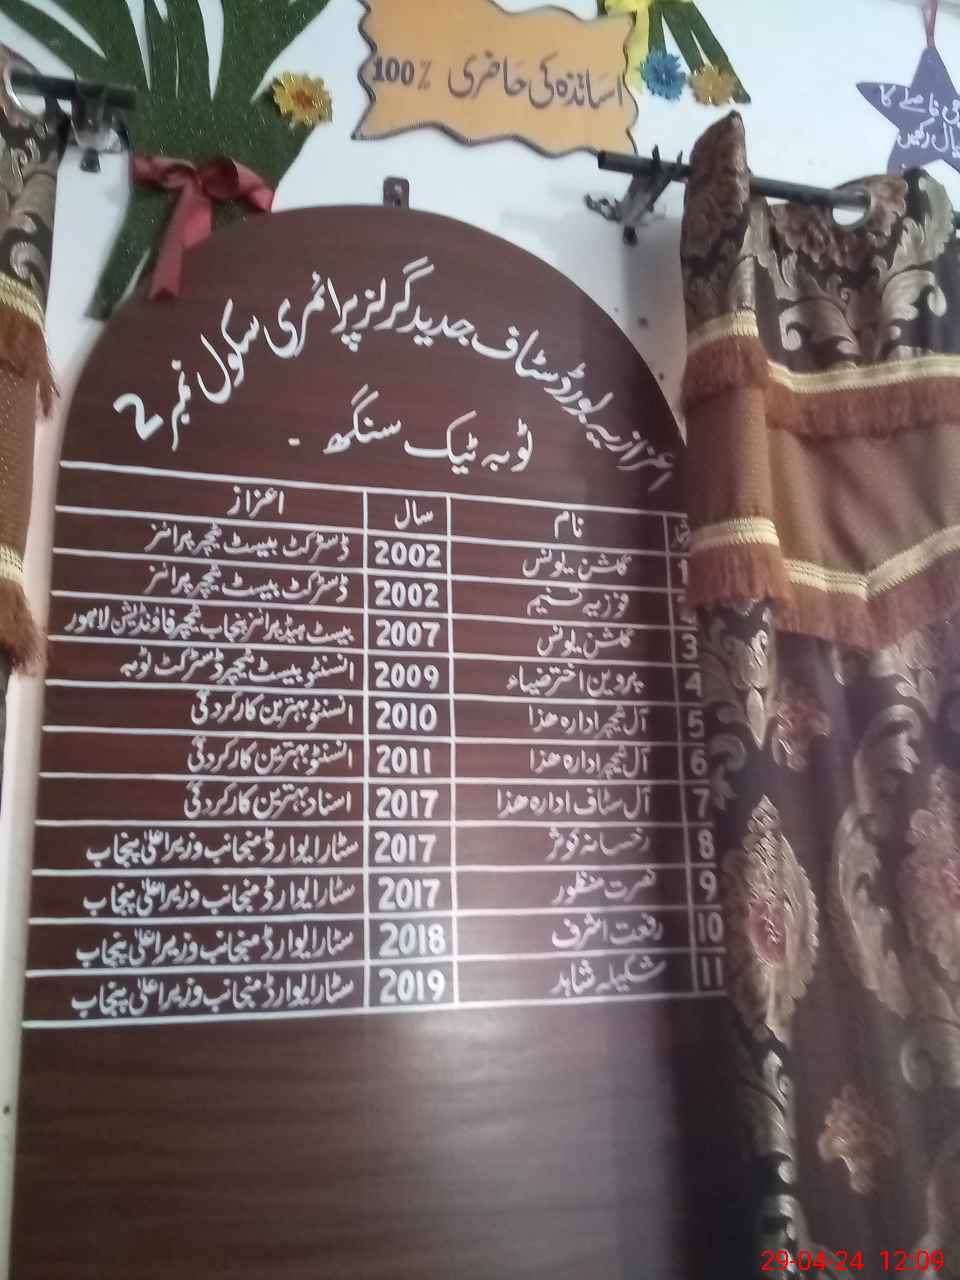 اساتذہ کی حاضری 100٪
خیال رکھیں
اعزازیہ بورڈ سٹاف جدید گرلز پرائمری سکول نمبر 2
ٹوبہ ٹیک سنگھ ۔
نام سال اعزاز
1 گلشن یونس 2002 ڈسٹرکٹ بیسٹ ٹیچر پرائز
فوزیہ تسنیم 2002 ڈسٹرکٹ بیسٹ ٹیچر پرائز
3 گلشن یونس 2007 بیسٹ ہیڈ پرائز پنجاب ٹیچر فاونڈیشن لاہور
4 پروین اختر ضیاء 2009 انسنٹو بیسٹ ٹیچر ڈسٹرکٹ ٹوبہ
5 آل ٹیچر ادارہ ھذا 2010 انسنٹو بہترین کارکردگی
6 آل ٹیچر ادارہ ھذا 2011 انسنٹو بہترین کارکردگی
7 آل سٹاف ادارہ ھذا 2017 اسناد بہترین کارکردگی
8 رخسانہ کوثر 2017 سٹار ایوارڈ منجانب وزیر اعلیٰ پنجاب
9 نصرت منظور 2017 سٹار ایوارڈ منجانب وزیر اعلیٰ پنجاب
10 رفعت اشرف 2018 سٹار ایوارڈ منجانب وزیر اعلیٰ پنجاب
11 شکیلہ شاہد 2019 سٹار ایوارڈ منجانب وزیر اعلیٰ پنجاب
29-04-24 12:09